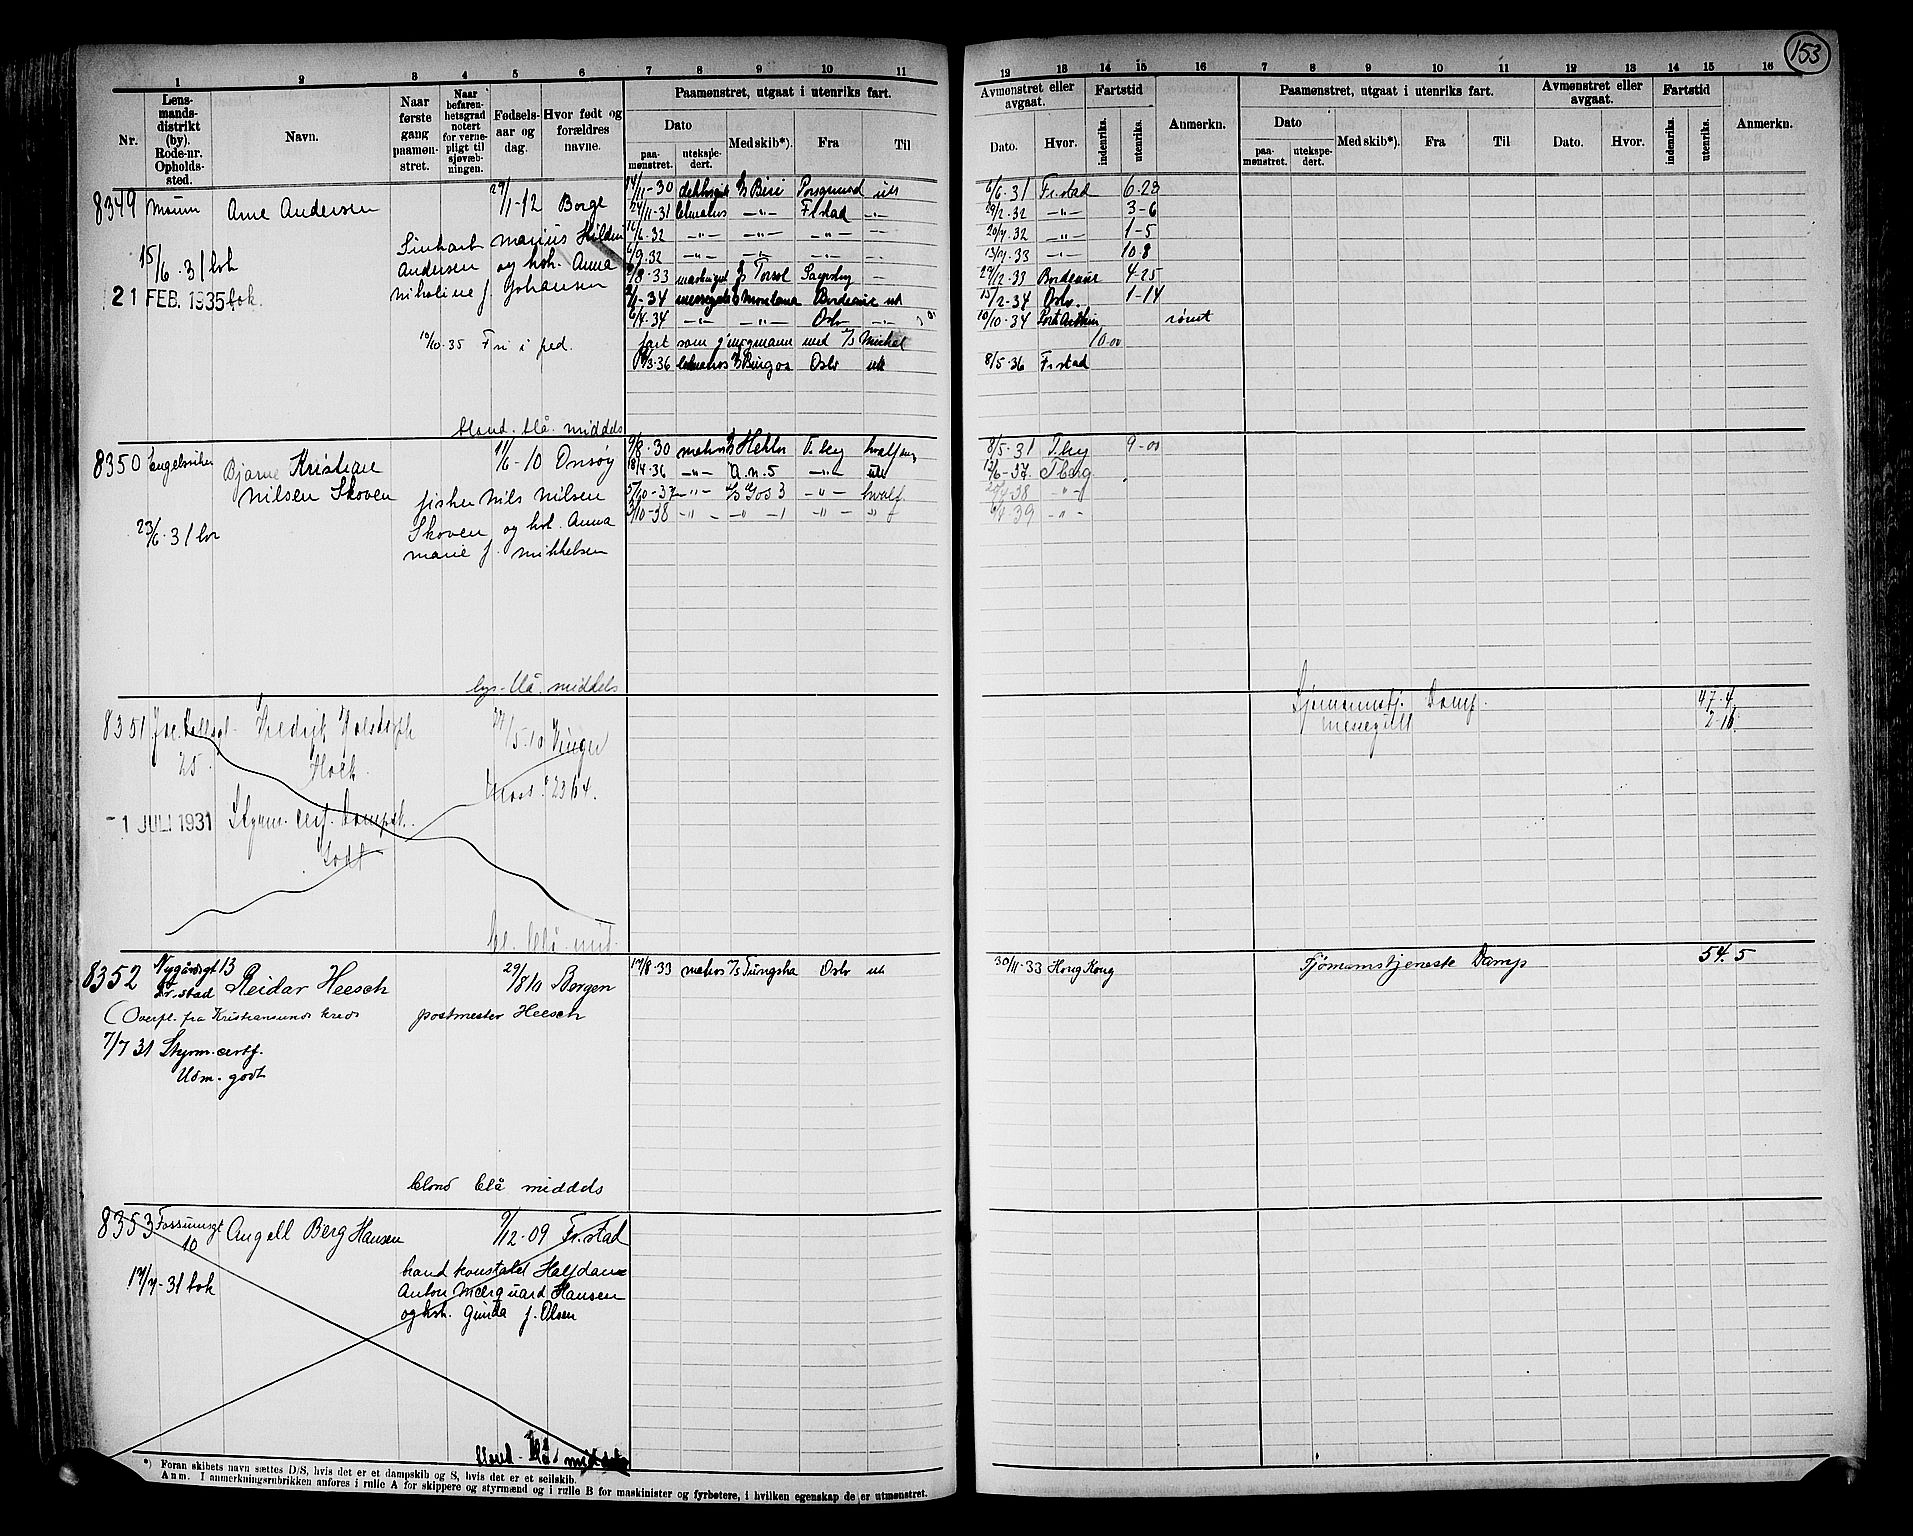 153
1 2 3 4 5 6 7 8 9 10 11
12 13 14 15 16 7 8 9 10 11 12 13 14 15 16
Nr.
Lens-
mands-
distrikt
(by).
Rode-nr.
Opholds-
sted.
Navn.
Naar
første
gang
paamøn-
stret.
Naar
befaren-
hetsgrad
notert
for verne-
pligt til
sjøvæb-
ningen.
Fødsels-
aar og
dag.
Hvor født og
forældres
navne.
Paamønstret, utgaat i utenriks fart.
Dato
paa-
mønstret.
utekspe-
dert.
Med skib*).
Fra
Til
Avmønstret eller
avgaat.
Dato.
Hvor.
Fartstid
indenriks.
utenriks.
Anmerkn.
Paamønstret, utgaat i utenriks fart.
Dato
paa-
mønstret.
utekspe-
dert.
Med skib*).
Fra
Til
Avmønstret eller
avgaat.
Dato.
Hvor.
Fartstid
indenriks.
utenriks.
Anmerkn.
8349 Moum Arne Andersen 29/1-12 Borge
marius
Andersen og hst. Anna
Nikoline f. Johansen
15/6.31 bok
21 FEB. 1935 bok.
10/10.35 Fri i fed.
blond. blå. middels
14/11-30 Bisi Porsgrund uts 6/6.31 Fr.stad 6-23
24/11-31 letmatros -"- Fr.stad -"- 29/2.32 -"- 3-6
16/6.32 -"- -"- -"- -"- 20/7.32 -"- 1-5
6/9.32 -"- -"- -"- 13/7.33 -"- 10 8
8.33 Torsol Sarpsborg - 29/12.33 Bordeaux 4-25
1-34 Montana Bordeaux ut 15/2-34 Oslo. 1-14
6/4.34 -"- -"- Oslo -"- 10/10-34 Port Arthur rømt
fart som med Michel 10-00
3.36 letmatros Oslo utr 8/5.36 Fr.stad
8350 Engelsviken Bjarne Kristian
Nilsen Skoven
11/6-10 Onsøy
fisker Nils Nilsen
Skoven og hst. Anna
Marie f. Mikkelsen
23/6.31 bok
lys. blå. middels
9/8.30 matros Hektor T.berg hvalfang 8/5.31 T.berg 9-00
18/4.36 -"- A.N.5 -"- utr 12/6-37 Tberg
27/10-37 -"- Gos 3 -"- hvalf 38 -"-
3/10-38 -"- -"- -"- -"- 39 -"-
8351
25.
Fredrik
Holt.
5.10 Vinger
Moss 2364.
-1 JULI 1931 Styrm. cert. Dampsk.
Godt
bl. blå. mid.
Sjømannstj. Damp. 47.4
messegutt 2-16.
8352 Nygårdsgt 13
Fr.stad
Reidar Heesch 29/8 10 Bergen
(Overfl. fra Kristiansunds kreds
postmester Heesch
7/7 31 Styrm. certf.
Udm. godt
blond blå middels
17/8.33 matros Tungsha Oslo ut 30/11-33 Hong Kong
Sjømannstjeneste Damp 54.5
8353 Fossumsgt
10
Angell Berg Hansen 9/12-09 Fr.stad
Halfdan
Anton Marquard Hansen
og hst. Gunda f. Olsen
17/7-31 bok
blond - blå middels
*) Foran skibets navn sættes D/S, hvis det er et dampskib og S, hvis det er et seilskib.
Anm. I anmerkningsrubrikken anføres i rulle A for skippere og styrmænd og i rulle B for maskinister og fyrbøtere, i hvilken egenskap de er utmønstret.